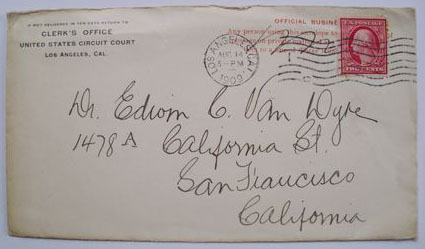 IF NOT DELIVERED IN TEN DAYS RETURN TO
CLERK'S OFFICE
UNITED STATES CIRCUIT COURT
LOS ANGELES, CAL.
OFFICIAL BUSINE
Any person using this envelope to
LOS ANGELES, CAL.
AUG 14
3-PM
1909
TWO CENTS
Dr. Edwin C. Van Dyke
1478 A California St.
San Francisco
California